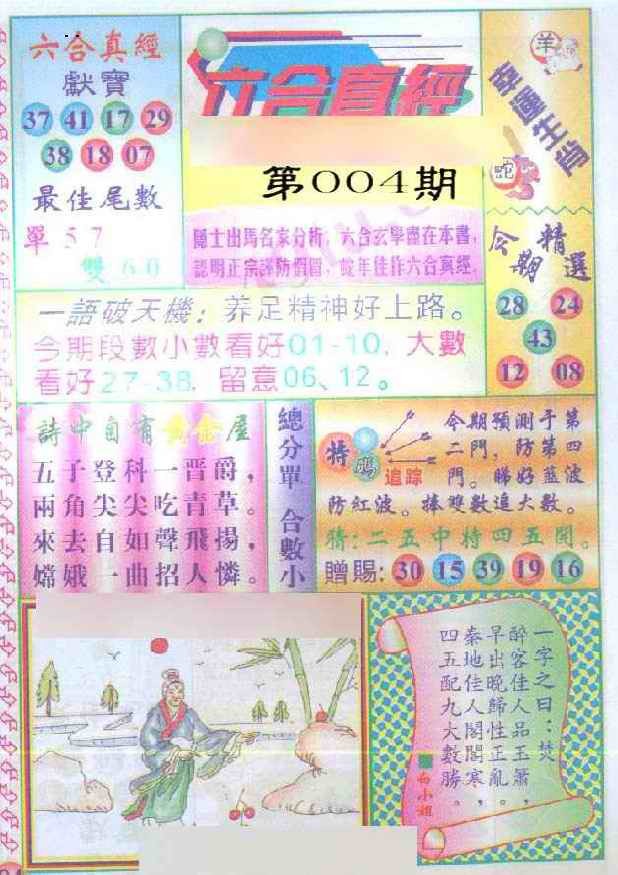 六合真經
獻寶
37 41 17 29
38 18 07
最佳尾數
單57
雙60
六合真經
第004期
隱士出馬名家分析，六合玄學盡在本書，
認明正宗謹防假冒，蛇年佳作六合真經，
羊
幸運生肖
蛇
今期
精選
28 24
43
12 08
一語破天機：养足精神好上路。
今期段數小數看好01-10，大數
看好27-38，留意06、12。
詩中自有黄金屋
五子登科一晋爵，
兩角尖尖吃青草。
來去自如聲飛揚，
嫦娥一曲招人憐。
總分單 合數小
特碼
追踪
今期預測于第
二門，防第四
門。睇好蓝波
防紅波。捧雙數追大數。
猜：二五中特四五開。
贈賜：30 15 39 19 16
一字之曰：焚
醉客佳人品玉簫，
早出晚歸性正亂。
秦地佳人閣閣寒，
四五配九大數勝。
白小姐